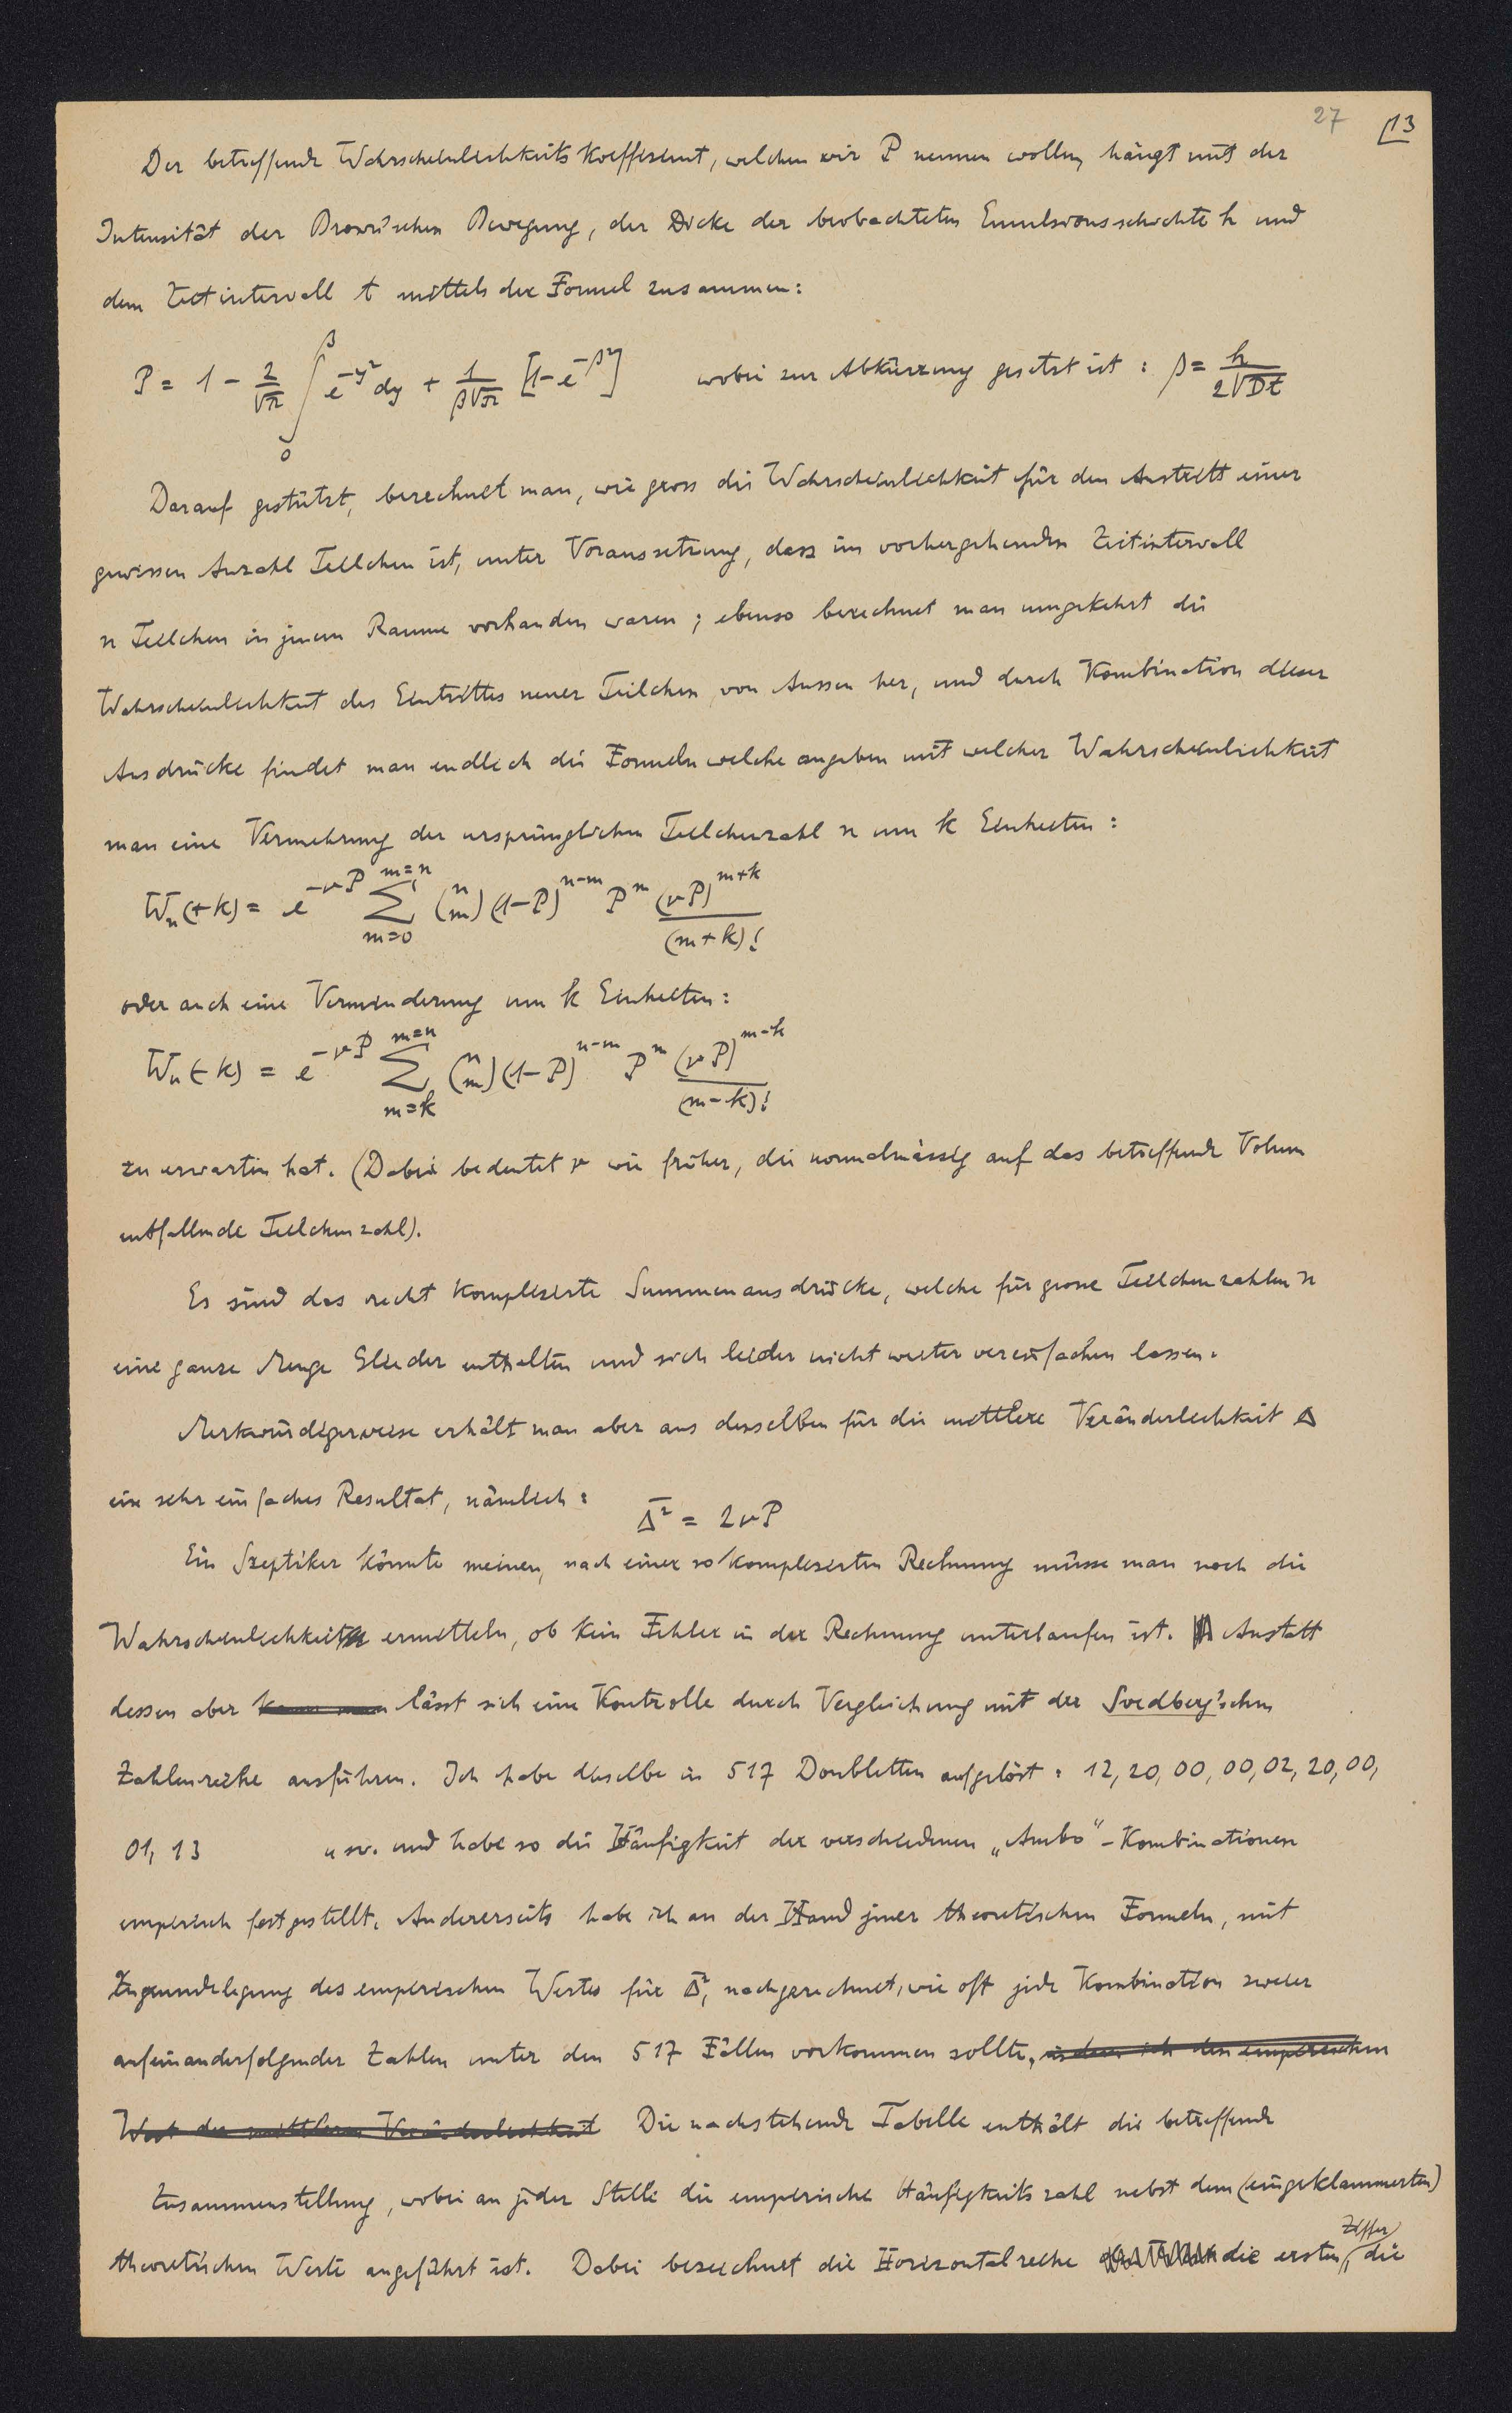 27 13
Der betreffende Wahrscheinlichkeits Koeffizient, welchen wir P nennen wollen, hängt mit der
Intensität der Brown'schen Bewegung, der Dicke der beobachteten Emulsionsschichte h und
dem Zeitintervall t mittels der Formel zusammen:
P = 1 - 2/√π ∫₀^β e^{-y²} dy + 1/(β√π) [1-e^{-β²}] wobei zur Abkürzung gesetzt ist : β = h/(2√Dt)
Darauf gestützt, berechnet man, wie gross die Wahrscheinlichkeit für den Austritt einer
gewissen Anzahl Teilchen ist, unter Voraussetzung, dass im vorhergehenden Zeitintervall
n Teilchen in jenem Raume vorhanden waren ; ebenso berechnet man umgekehrt die
Wahrscheinlichkeit des Eintrittes neuer Teilchen von Aussen her, und durch Kombination dieser
Ausdrücke findet man endlich die Formeln welche angeben mit welcher Wahrscheinlichkeit
man eine Vermehrung der ursprünglichen Teilchenzahl n um k Einheiten :
Wₙ(+k) = e^{-νP} Σ_{m=0}^{m=n} (n m) (1-P)^{n-m} P^m (νP)^{m+k}/(m+k)!
oder auch eine Verminderung um k Einheiten:
Wₙ(-k) = e^{-νP} Σ_{m=k}^{m=n} (n m) (1-P)^{n-m} P^m (νP)^{m-k}/(m-k)!
zu erwarten hat. (Dabei bedeutet ν wie früher, die normalmässig auf das betreffende Volum
entfallende Teilchenzahl).
Es sind das recht komplizierte Summenausdrücke, welche für grosse Teilchenzahlen n
eine ganze Menge Glieder enthalten und sich leider nicht weiter vereinfachen lassen.
Merkwürdigerweise erhält man aber aus denselben für die mittlere Veränderlichkeit Δ
ein sehr einfaches Resultat, nämlich : Δ̄² = 2νP
Ein Szeptiker könnte meinen, nach einer so komplizierten Rechnung müsse man noch die
Wahrscheinlichkeit ermitteln, ob kein Fehler in der Rechnung unterlaufen ist. Anstatt
dessen aber kann man lässt sich eine Kontrolle durch Vergleichung mit der Svedberg'schen
Zahlenreihe ausführen. Ich habe dieselbe in 517 Doubletten aufgelöst : 12, 20, 00, 00, 02, 20, 00,
01, 13 usw. und habe so die Häufigkeit der verschiedenen „Ambo"-Kombinationen
empirisch festgestellt. Andererseits habe ich an der Hand jener theoretischen Formeln, mit
Zugrundelegung des empirischen Wertes für Δ̄², nachgerechnet, wie oft jede Kombination zweier
aufeinanderfolgender Zahlen unter den 517 Fällen vorkommen sollte, indem ich den empirischen
Wert der mittleren Veränderlichkeit Die nachstehende Tabelle enthält die betreffende
Zusammenstellung, wobei an jeder Stelle die empirische Häufigkeitszahl nebst dem (eingeklammerten)
theoretischen Werte angeführt ist. Dabei bezeichnet die Horizontalreihe die ersten Ziffer, die